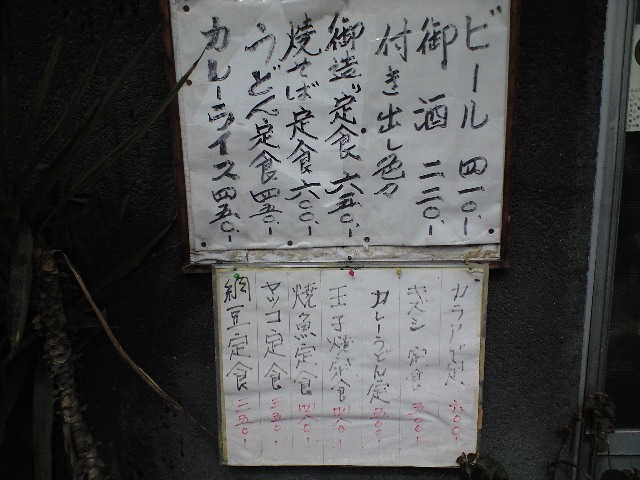 ビール 四一〇、
御酒 二二〇、
付き出し色々
御造り定食 六五〇、
焼そば定食 六〇〇、
うどん定食 四五〇、
カレーライス 四五〇、
カラアゲ定 六〇〇、
キズシ定食 五〇〇、
カレーうどん定 五〇〇、
玉子焼定食 四八〇、
焼魚定食 四八〇、
ヤッコ定食 三五〇、
納豆定食 三五〇、